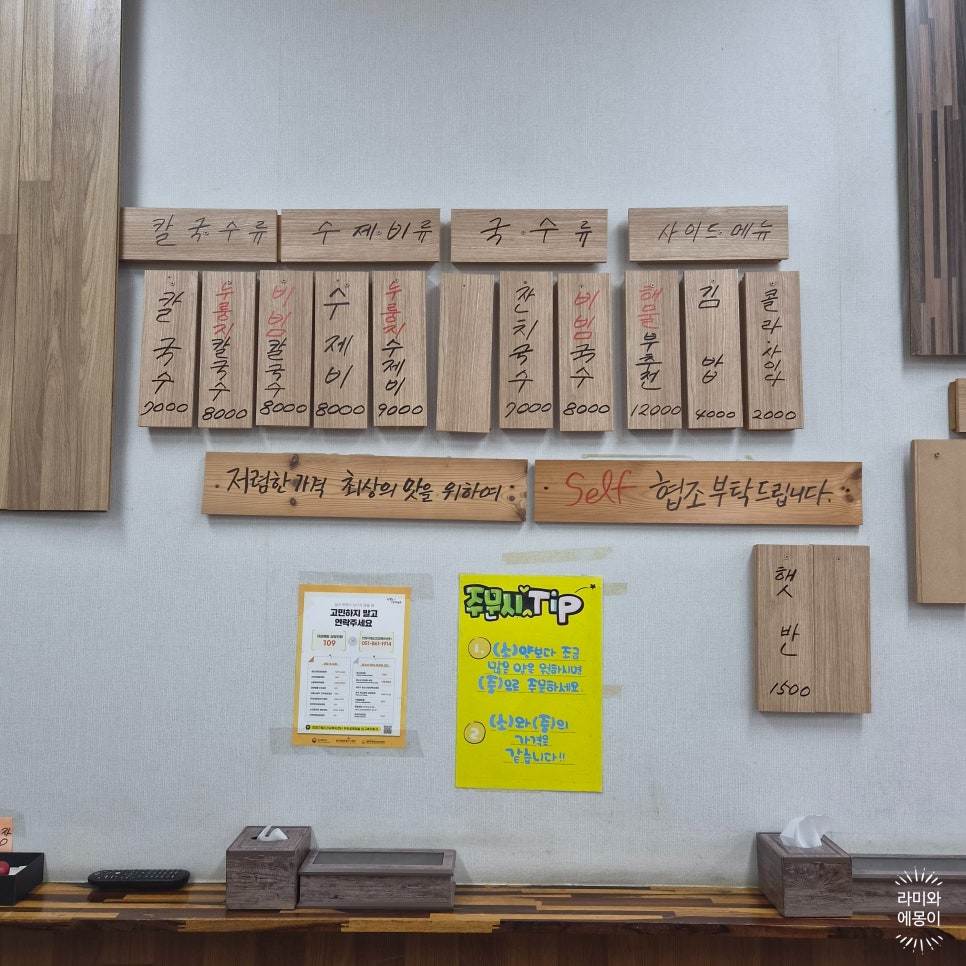 칼국수류
수제비류
국수류
사이드메뉴
칼국수
7000
누룽지칼국수
8000
비빔칼국수
8000
수제비
8000
누룽지수제비
9000
잔치국수
7000
비빔국수
8000
해물부추전
12000
김밥
4000
콜라.사이다
2000
저렴한 가격 최상의 맛을 위하여
Self 협조 부탁드립니다.
햇반
1500
고민하지 말고
연락주세요
109
051-861-1914
주문시 Tip
1. (소)양보다 조금
많은 양을 원하시면
(중)으로 주문하세요
2. (소)와 (중)의
가격은
같습니다!!
라미와
에몽이